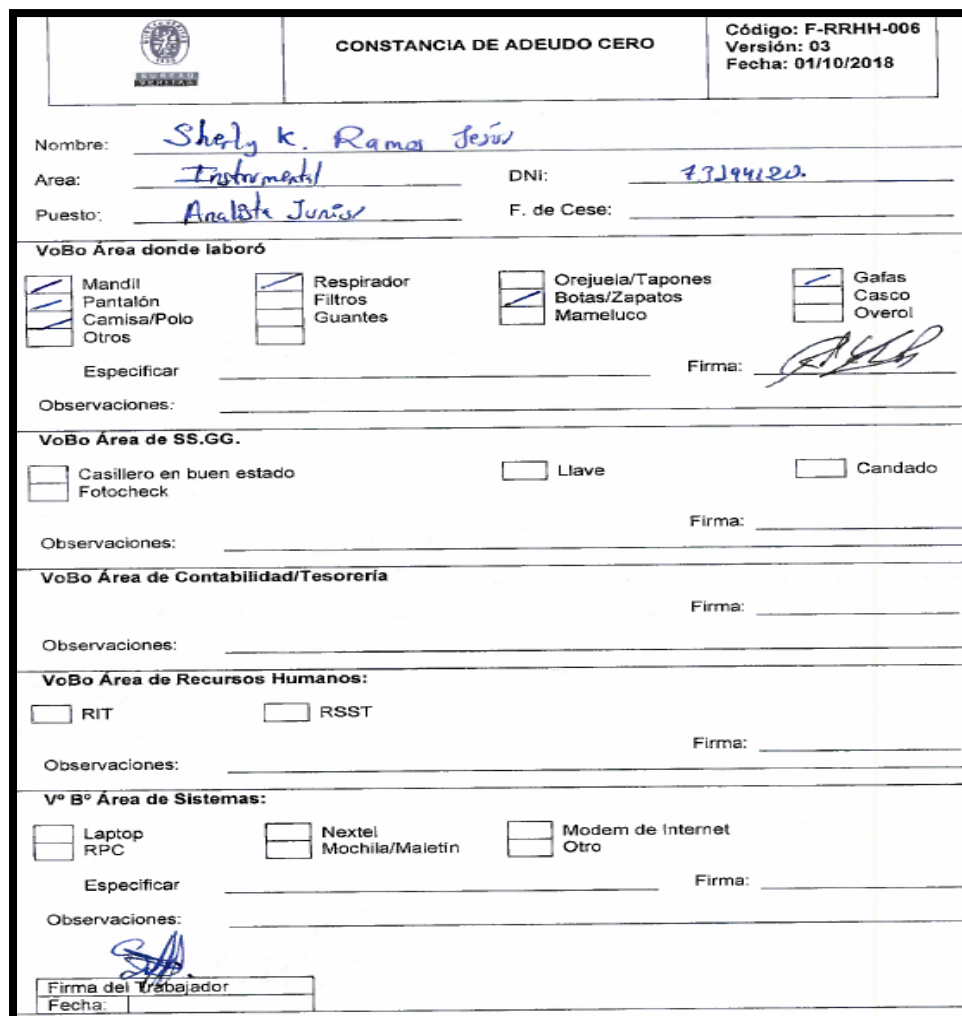 BUREAU
VERITAS
CONSTANCIA DE ADEUDO CERO
Código: F-RRHH-006
Versión: 03
Fecha: 01/10/2018
Nombre: Sherly K. Ramos Jesús
Area: Instrumental DNI: 73194120.
Puesto: Analista Junior F. de Cese:
VoBo Área donde laboró
Mandil Respirador Orejuela/Tapones Gafas
Pantalón Filtros Botas/Zapatos Casco
Camisa/Polo Guantes Mameluco Overol
Otros
Especificar Firma:
Observaciones:
VoBo Área de SS.GG.
Casillero en buen estado Llave Candado
Fotocheck
Firma:
Observaciones:
VoBo Área de Contabilidad/Tesorería
Firma:
Observaciones:
VoBo Área de Recursos Humanos:
RIT RSST
Firma:
Observaciones:
Vº Bº Área de Sistemas:
Laptop Nextel Modem de Internet
RPC Mochila/Maletin Otro
Especificar Firma:
Observaciones:
Firma del Trabajador
Fecha: